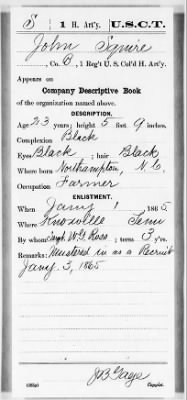 S | 1 H. Art'y. | U.S.C.T.
John Squire
, Co. B, 1 Reg't U. S. Col'd H. Art'y.
Appears on
Company Descriptive Book
of the organization named above.
DESCRIPTION.
Age 23 years; height 5 feet 9 inches.
Complexion Black
Eyes Black; hair Black
Where born Northampton, N.C.
Occupation Farmer
ENLISTMENT.
When Jany 1, 1865
Where Knoxville Tenn
By whom W. G. Ross; term 3 y'rs.
Remarks: Mustered in as a Recruit
Jany 3, 1865
J B Gage
Copyist.